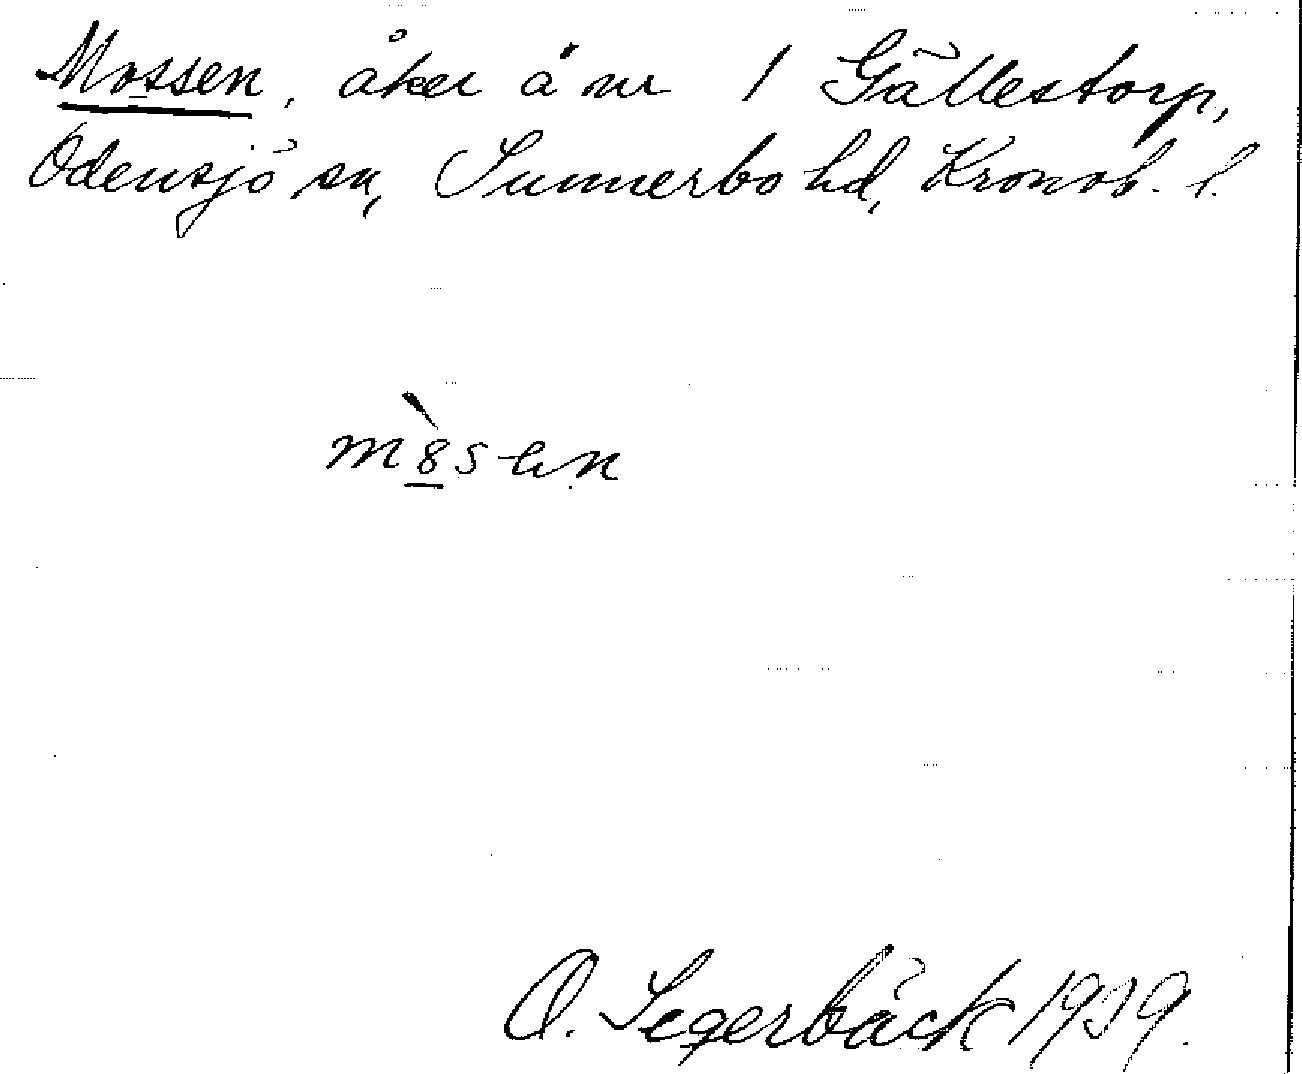 Mossen, åker å nr 1 Gällestorp,
Odensjö sn, Sunnerbo hd, Kronob. l.
m8̀sən
O. Segerbäck 1939.